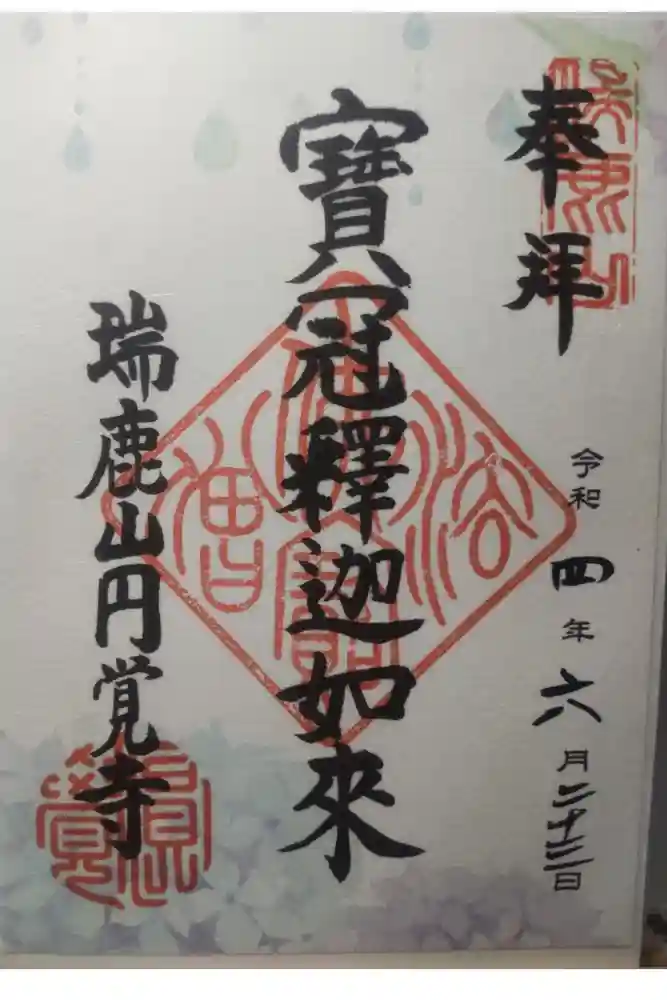 奉拝
令和四年六月二十三日
寶冠釋迦如來
瑞鹿山円覚寺